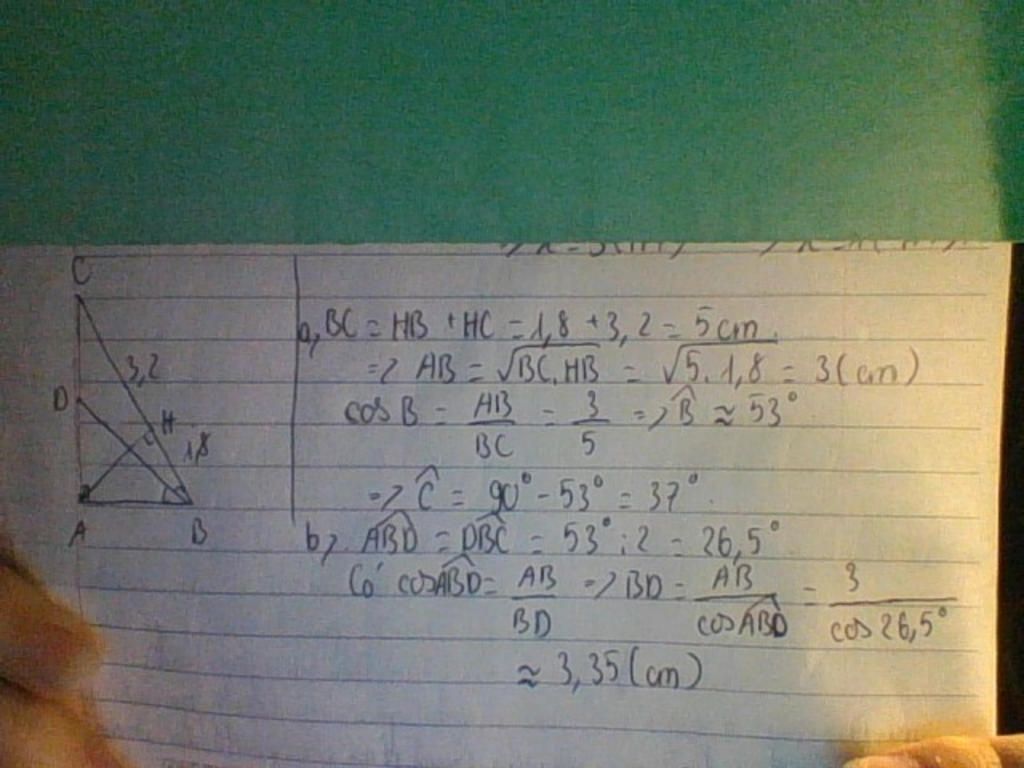 C
3,2
D
H
1,8
A
B
a, BC = HB + HC = 1,8 + 3,2 = 5cm.
=> AB = √BC.HB = √5.1,8 = 3(cm)
cosB = AB/BC = 3/5 => B̂ ≈ 53°
=> Ĉ = 90° - 53° = 37°.
b, ABD̂ = DBĈ = 53° : 2 = 26,5°
Có cosABD̂ = AB/BD => BD = AB/cosABD̂ = 3/cos26,5°
≈ 3,35(cm)